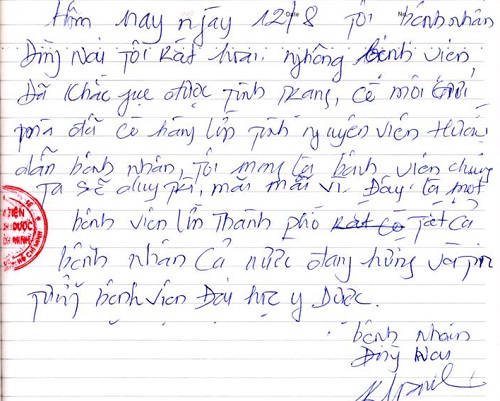 Hôm nay ngày 12/8 Tôi bệnh nhân
Đồng Nai Tôi Rất hài nghòng bệnh viên
Đã Khắc fục được tình trạng, có mỗi
mà đã có hàng lớp tình nguyện viên Hướng
dẫn bệnh nhân, Tôi mong là bệnh viên chúng
Ta sẽ duy trì, mãi mãi vì. Đây là một
bệnh viên lớn Thành phố Rất có Tất Cả
bệnh nhân Cả nước đang hướng về
tưởng bệnh viên Đại học y Dược.
bệnh nhân
Đồng Nai
Y DƯỢC
HỒ CHÍ MINH